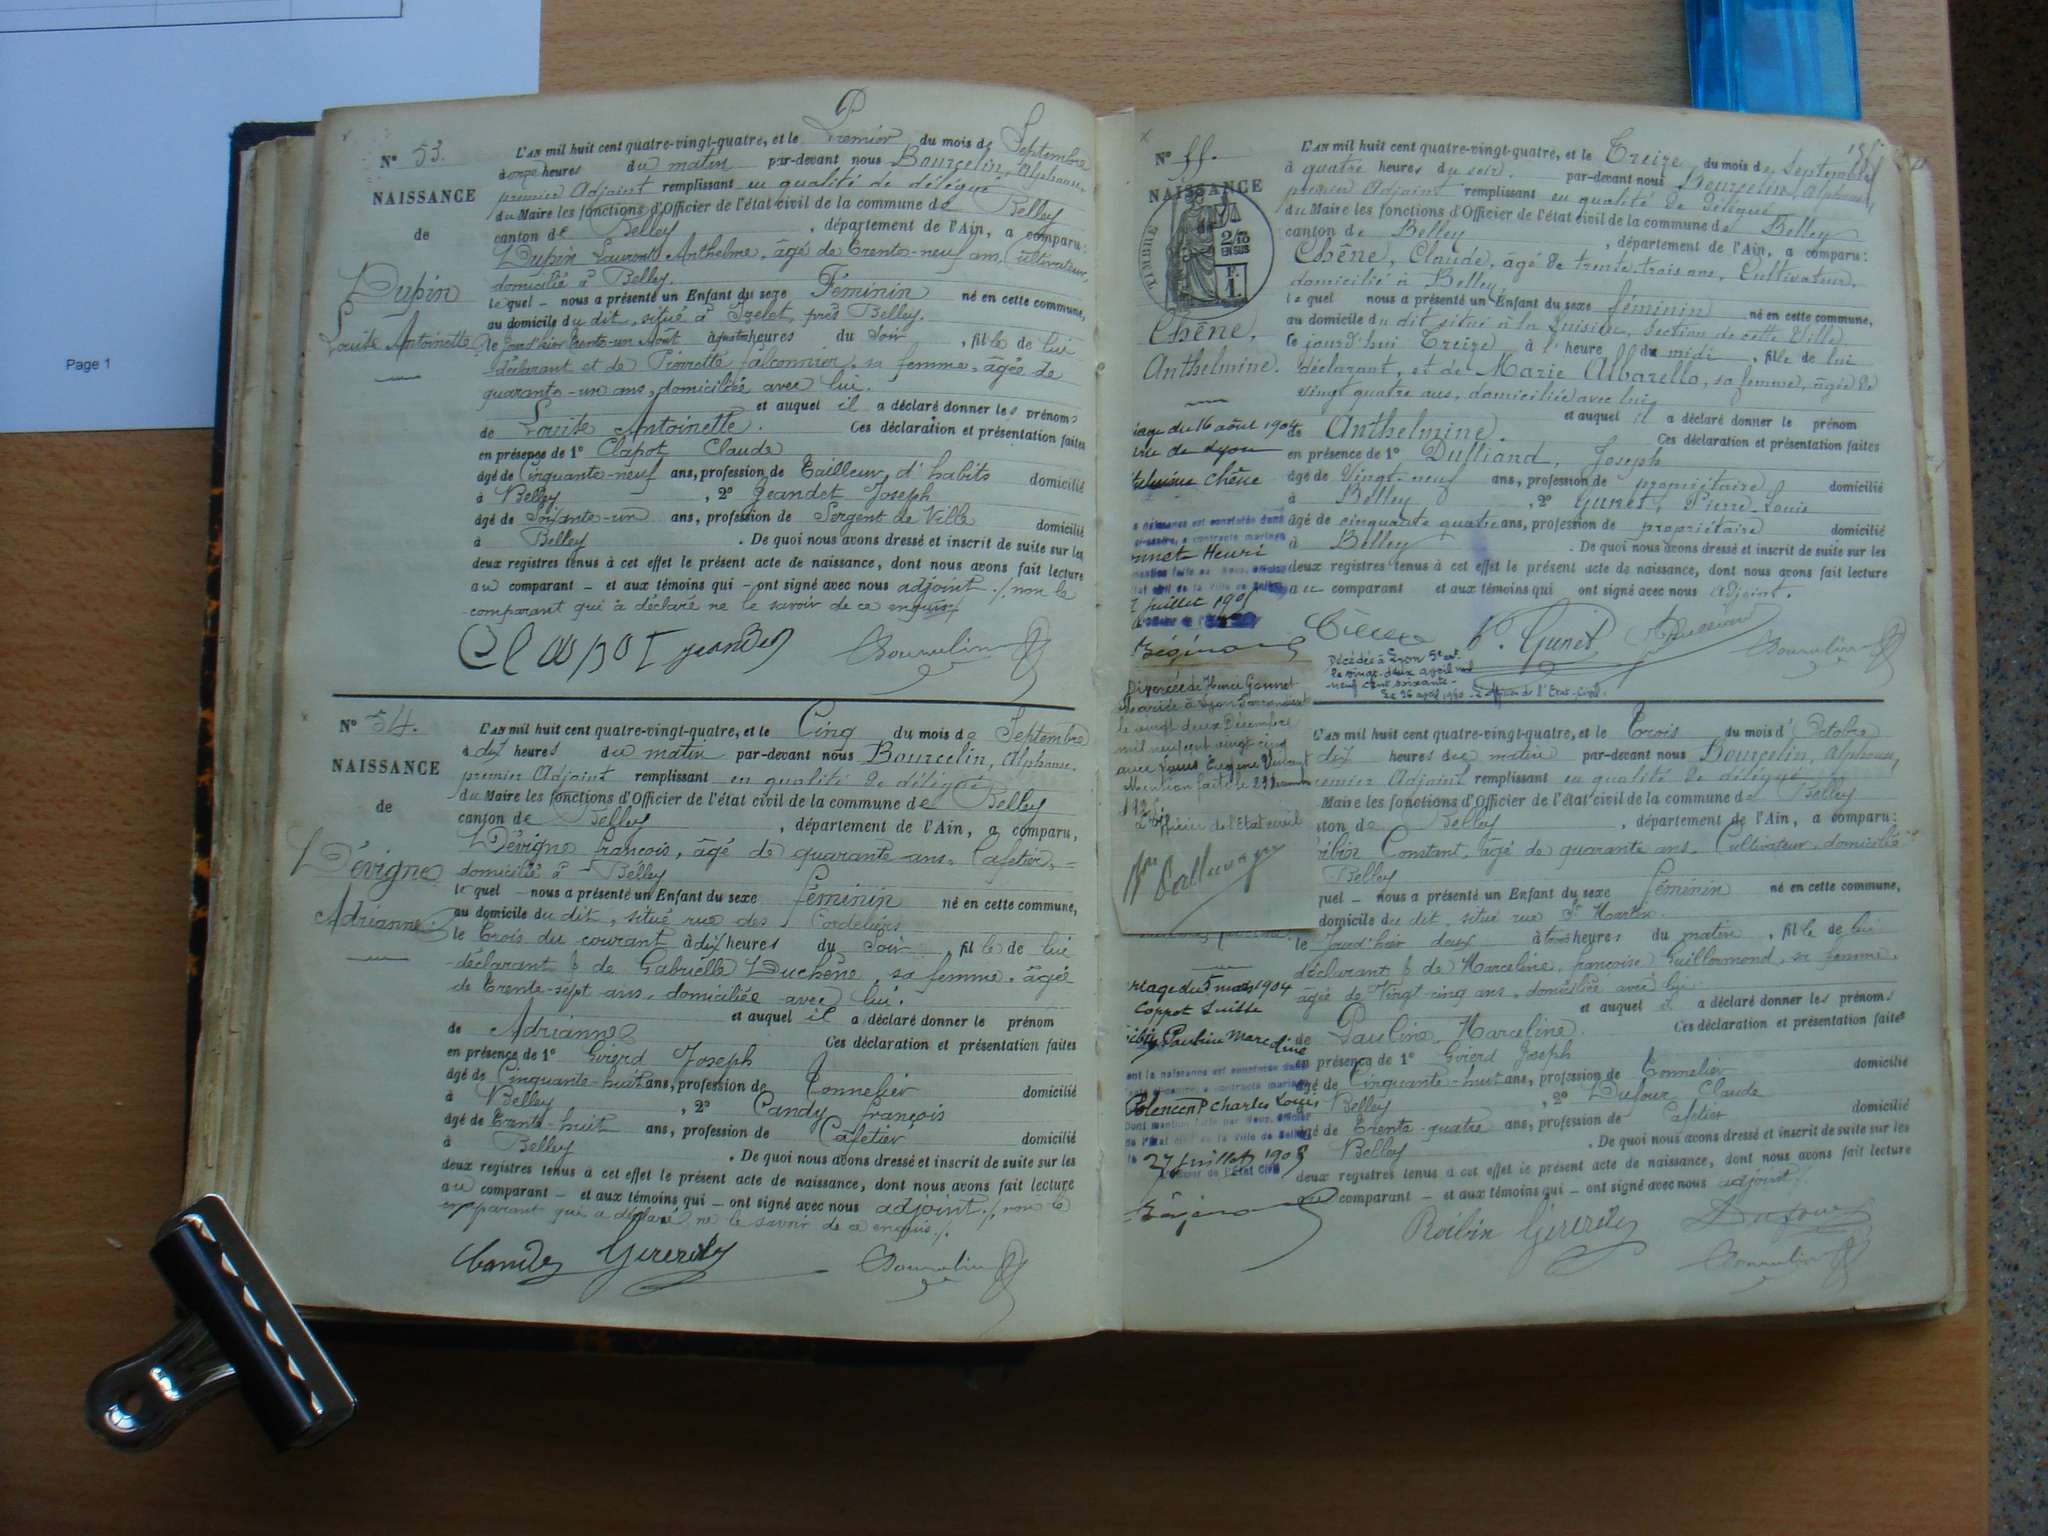 Page 1
N° 53.
NAISSANCE
de
Dupin
Louise Antoinette
L'an mil huit cent quatre-vingt-quatre, et le Premier du mois de Septembre
à onze heures du matin par-devant nous Bourcelin, Alphonse,
premier Adjoint remplissant en qualité de délégué
du Maire les fonctions d'Officier de l'état civil de la commune de Belley
canton de Belley, département de l'Ain, a comparu:
Dupin Laurent Anthelme, âgé de trente-neuf ans, Cultivateur,
domicilié à Belley.
le quel — nous a présenté un Enfant du sexe Féminin né en cette commune,
au domicile du dit, situé à Izelet, près Belley,
le jour d'hier trente-un Août à quatre heures du Soir, fille de lui
déclarant et de Pierrette Falconnier, sa femme, âgée de
quarante-un ans, domiciliée avec lui.
et auquel il a déclaré donner les prénoms
de Louise Antoinette. Ces déclaration et présentation faites
en présence de 1° Clapot Claude
âgé de Cinquante-neuf ans, profession de Tailleur d'habits domicilié
à Belley, 2° Jeandet Joseph
âgé de Soixante-un ans, profession de Sergent de Ville domicilié
à Belley. De quoi nous avons dressé et inscrit de suite sur les
deux registres tenus à cet effet le présent acte de naissance, dont nous avons fait lecture
au comparant — et aux témoins qui — ont signé avec nous adjoint ./. non le
comparant qui a déclaré ne le savoir de ce enquis ./.
Clapot Jeandet Bourcelin
N° 54.
NAISSANCE
de
Dévigne
Adrianne.
L'an mil huit cent quatre-vingt-quatre, et le Cinq du mois de Septembre
à dix heures du matin par-devant nous Bourcelin, Alphonse,
premier Adjoint remplissant en qualité de délégué
du Maire les fonctions d'Officier de l'état civil de la commune de Belley
canton de Belley, département de l'Ain, a comparu,
Dévigne François, âgé de quarante ans, Cafetier,
domicilié à Belley
le quel — nous a présenté un Enfant du sexe féminin né en cette commune,
au domicile du dit, situé rue des Cordeliers
le Trois du courant à dix heures du Soir, fille de lui
déclarant & de Gabrielle Duchêne, sa femme, âgée
de Trente-sept ans, domiciliée avec lui.
et auquel il a déclaré donner le prénom
de Adrianne Ces déclaration et présentation faites
en présence de 1° Girerd Joseph
âgé de Cinquante-huit ans, profession de Tonnelier domicilié
à Belley, 2° Candy François
âgé de Trente-huit ans, profession de Cafetier domicilié
à Belley. De quoi nous avons dressé et inscrit de suite sur les
deux registres tenus à cet effet le présent acte de naissance, dont nous avons fait lecture
au comparant — et aux témoins qui — ont signé avec nous adjoint ./. non le
comparant qui a déclaré ne le savoir de ce enquis ./.
Candy Girerd Bourcelin
N° 55.
NAISSANCE
de
TIMBRE
2/10
EN SUS
F.
1.
Chêne,
Anthelmine.
L'an mil huit cent quatre-vingt-quatre, et le Treize du mois de Septembre
à quatre heures du soir. par-devant nous Bourcelin, Alphonse,
premier Adjoint remplissant en qualité de délégué
du Maire les fonctions d'Officier de l'état civil de la commune de Belley
canton de Belley, département de l'Ain, a comparu:
Chêne, Claude, âgé de trente-trois ans, Cultivateur,
domicilié à Belley,
le quel nous a présenté un Enfant du sexe féminin né en cette commune,
au domicile du dit situé à la , section de cette Ville,
le jourd'hui Treize à l'heure de midi, fille de lui
déclarant, et de Marie Albarello, sa femme, âgée de
vingt quatre ans, domiciliée avec lui,
et auquel il a déclaré donner le prénom
de Anthelmine. Ces déclaration et présentation faites
en présence de 1° Dulliand, Joseph
âgé de Vingt-neuf ans, profession de propriétaire domicilié
à Belley, 2° Gunet, Pierre-Louis
âgé de cinquante quatre ans, profession de propriétaire domicilié
à Belley. De quoi nous avons dressé et inscrit de suite sur les
deux registres tenus à cet effet le présent acte de naissance, dont nous avons fait lecture
au comparant et aux témoins qui ont signé avec nous adjoint.
Gunet Bourcelin
iage du 16 août 1904
de Lyon
Chêne
a naissance est constatée dans
a contracte mariage
Henri
mention faite par Nous, officier
tat civil de la Ville de Belley
juillet 1905
Décédée à Lyon 5e art.
le vingt-deux avril mil
neuf cent soixante.
Le 26 avril 1960. officier de l'Etat-Civil.
Divorcée de Henri Gonnet
Mariée à Lyon
le vingt deux Décembre
mil neuf cent vingt cinq
avec Eugène
Mention faite le 29
officier de l'Etat civil
L'an mil huit cent quatre-vingt-quatre, et le Trois du mois d'Octobre
dix heures du matin par-devant nous Bourcelin, Alphonse,
premier Adjoint remplissant en qualité de délégué
Maire les fonctions d'Officier de l'état civil de la commune de Belley
ton de Belley, département de l'Ain, a comparu:
ibin Constant, âgé de quarante ans, Cultivateur, domicilié
Belley
quel — nous a présenté un Enfant du sexe féminin né en cette commune,
domicile du dit, situé rue St Martin
le jourd'hier deux à trois heures du matin, fille de lui
déclarant & de Marceline, Françoise Guillermond, sa femme,
âgée de Vingt-cinq ans, domiciliée avec lui.
et auquel il a déclaré donner les prénoms
de Pauline Marceline. Ces déclaration et présentation faites
en présence de 1° Girerd Joseph
âgé de Cinquante-huit ans, profession de Tonnelier domicilié
Belley, 2° Dufour Claude
âgé de Trente-quatre ans, profession de Cafetier domicilié
Belley. De quoi nous avons dressé et inscrit de suite sur les
deux registres tenus à cet effet le présent acte de naissance, dont nous avons fait lecture
comparant — et aux témoins qui — ont signé avec nous adjoint ./.
Roibin Girerd Dufour
Bourcelin
riage du 5 mars 1904
Coppet Suisse
Pauline Marceline
ont la naissance est constatée dans
a contracte mariage
Charles Louis
Dont mention faite par Nous, officier
de l'État civil de la Ville de Belley
le 27 juillet 1905
de l'État Civil